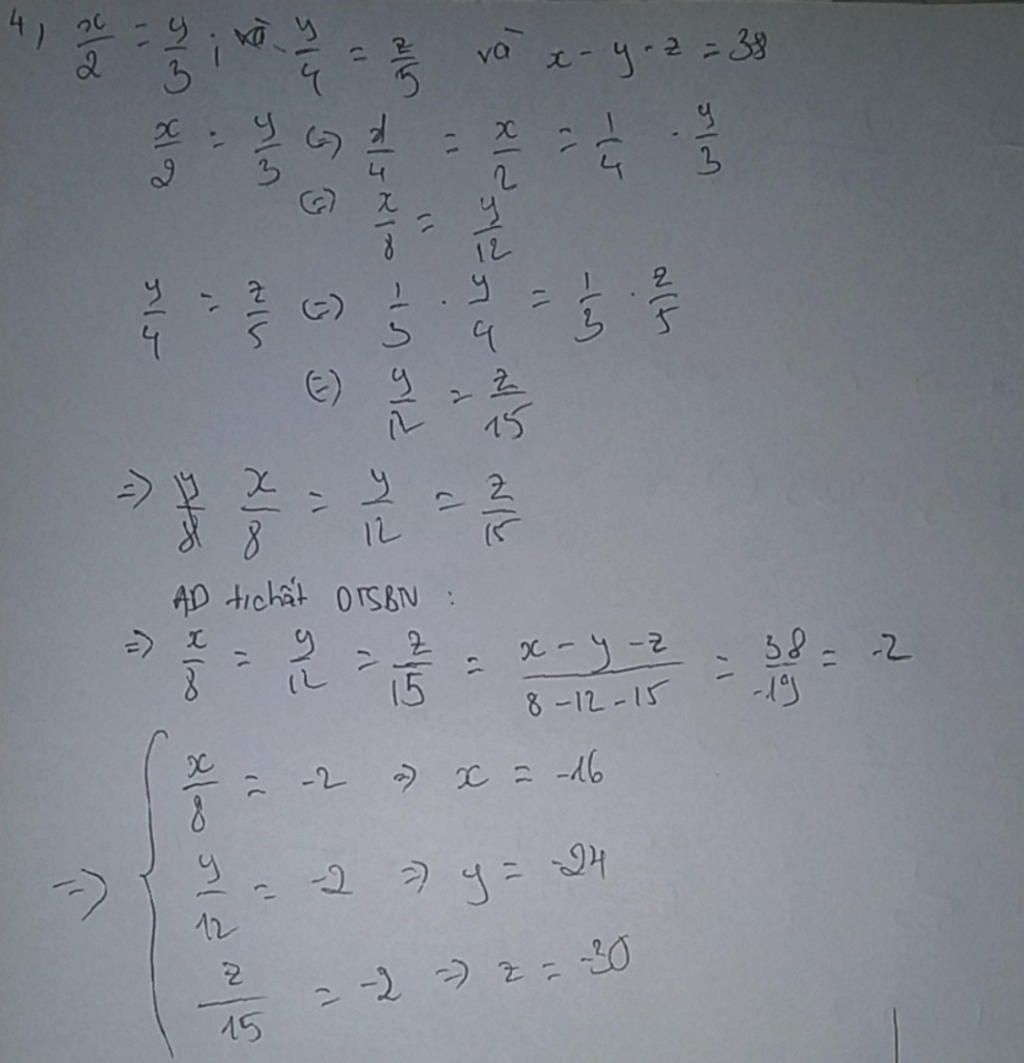 4, x/2 = y/3 ; và y/4 = z/5 và x - y - z = 38
x/2 = y/3 (=) 1/4 = x/2 = 1/4 . y/3
(=) x/8 = y/12
y/4 = z/5 (=) 1/3 . y/4 = 1/3 . z/5
(=) y/12 = z/15
=> y/8 x/8 = y/12 = z/15
AD tichất DTSBN :
=> x/8 = y/12 = z/15 = x - y - z / 8 - 12 - 15 = 38/-19 = -2
x/8 = -2 => x = -16
=> y/12 = -2 => y = -24
z/15 = -2 => z = -30